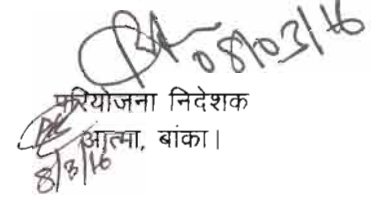 08/03/16
परियोजना निदेशक
आत्मा, बांका।
8/3/16